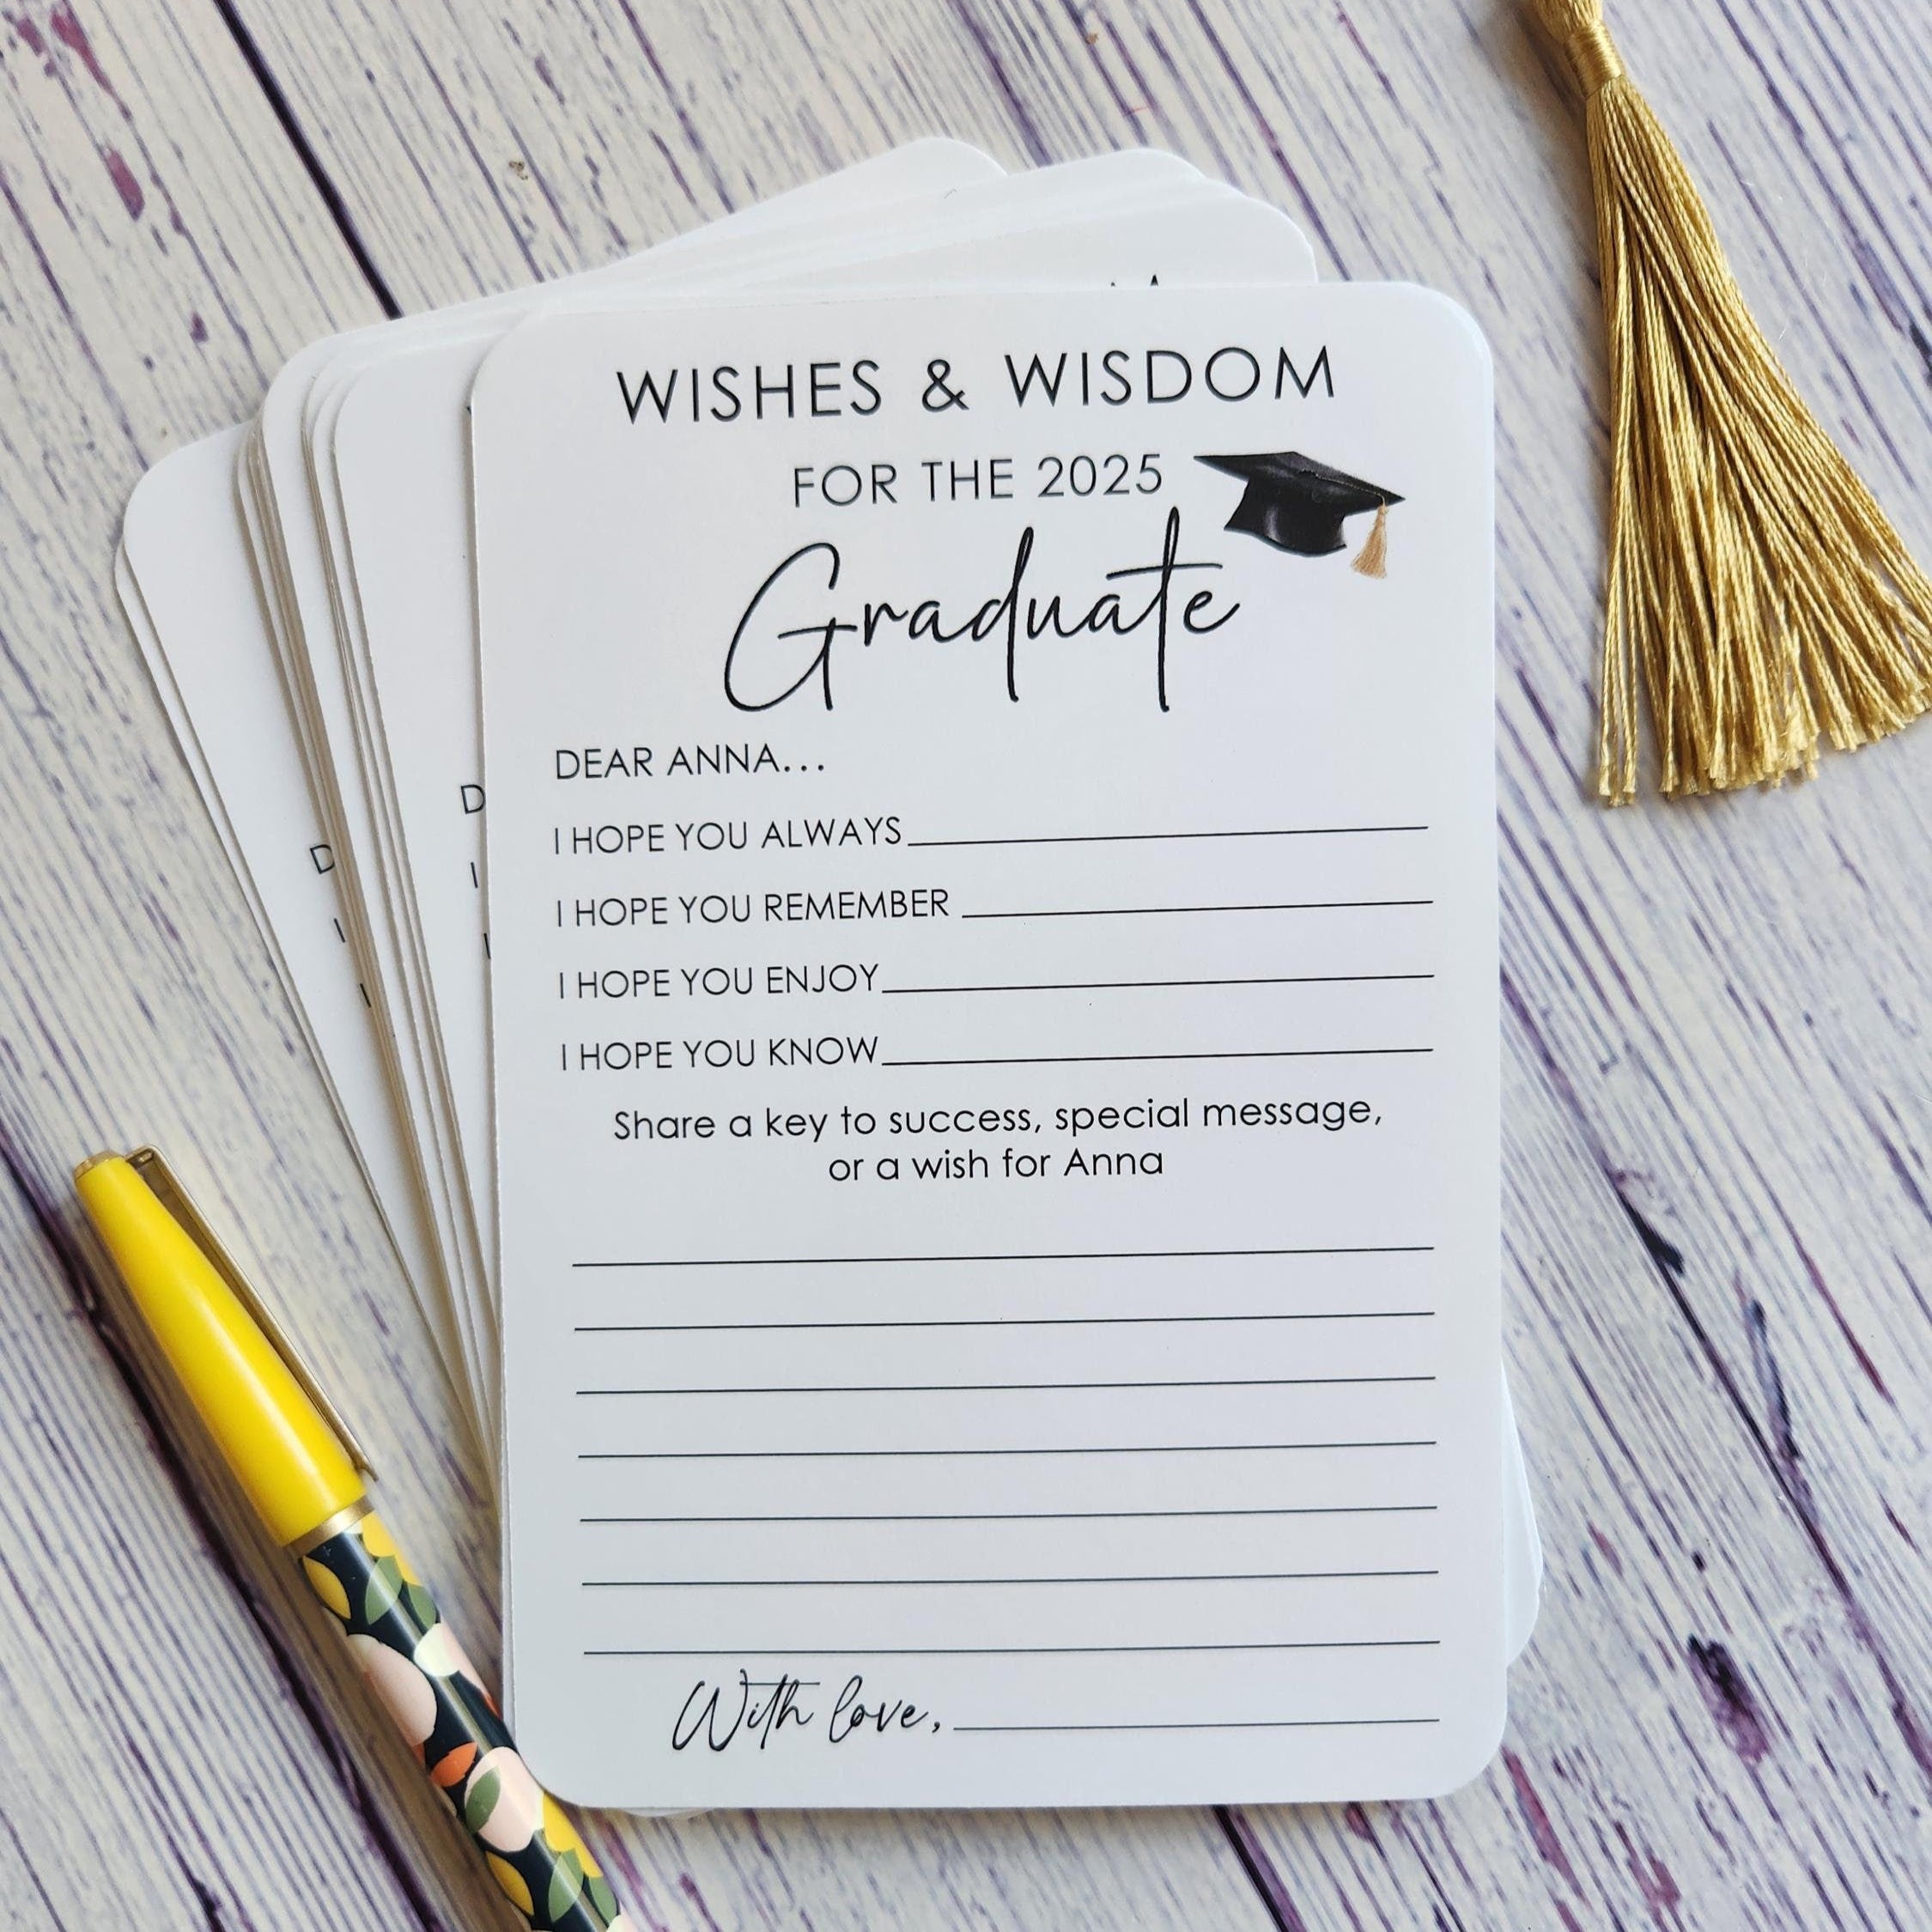 WISHES & WISDOM
FOR THE 2025
Graduate
DEAR ANNA...
I HOPE YOU ALWAYS
I HOPE YOU REMEMBER
I HOPE YOU ENJOY
I HOPE YOU KNOW
Share a key to success, special message,
or a wish for Anna
With love,